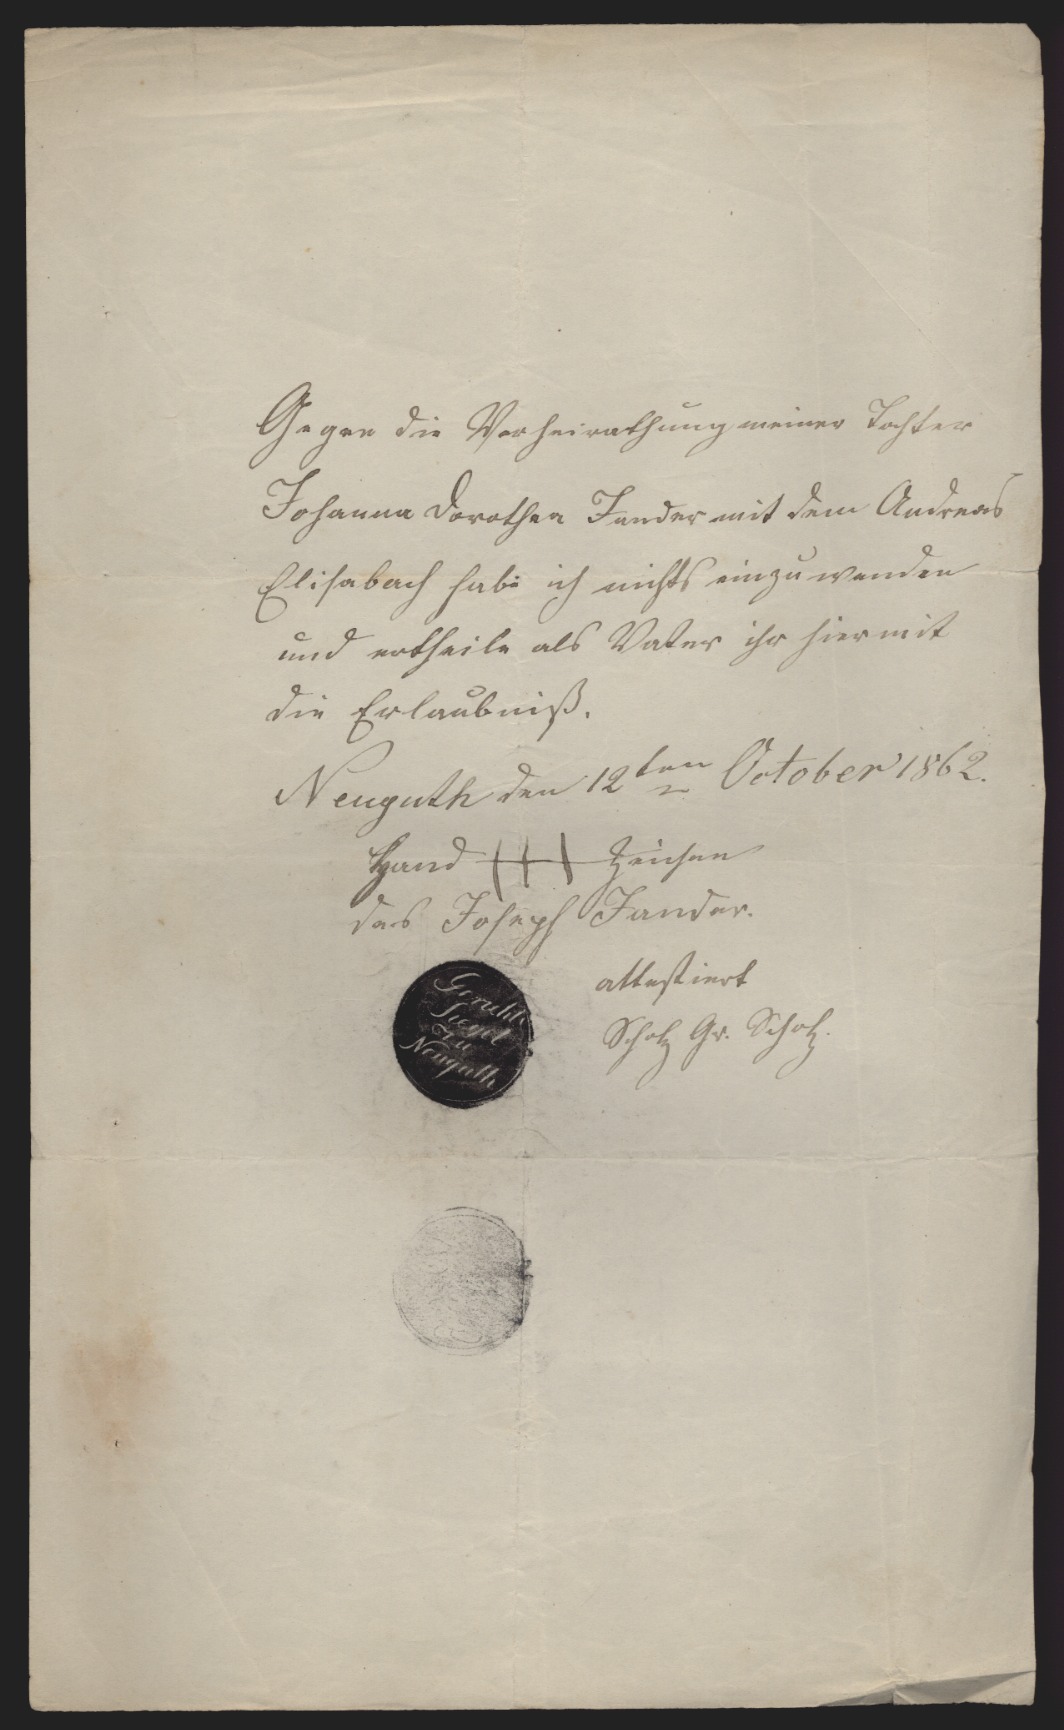 Gegen die Verheirathung meiner Tochter
Johanna Dorothea Jander mit dem Andreas
Elisabach habe ich nichts einzuwenden
und ertheile als Vater ihr hiermit
die Erlaubniß.
Neuguth den 12ten October 1862.
Hand +++ Zeichen
des Joseph Jander.
attestiert
Scholz Gr. Scholz.
Gerichts
Siegel
zu
Neuguth